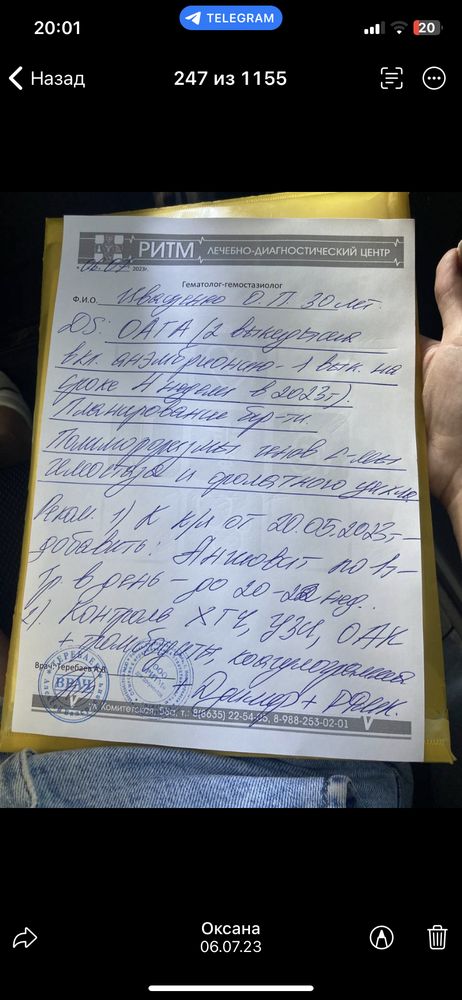 20:01
TELEGRAM
20
Назад
247 из 1155
РИТМ ЛЕЧЕБНО-ДИАГНОСТИЧЕСКИЙ ЦЕНТР
06.07 2023г.
Гематолог-гемостазиолог
Ф.И.О. О.П 30 лет.
DS: ОАГА (2 выкидыша
вкл. анэмбрионию - 1 вык. на
сроке 4 недели в 2023г).
Планирование бер-ти.
Полиморфизмы генов с-мы
гемостаза и фолатного цикла
Реком. 1) К к/л от 20.05.2023г -
добавить: Ангиовит по 1т -
1р в день - до 20-22 нед.
2). Контроль ХГЧ, УЗИ, ОАК
+ тромбоциты коагулограмма
Врач: Теребаев А.Д.
ВРАЧ
Димер + РФМК.
ул. Комитетская, т.: 8(8635) 22-54-05, 8-988-253-02-01
Оксана
06.07.23